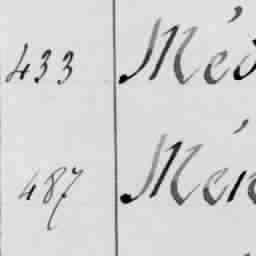 433 Méd
487 Mén